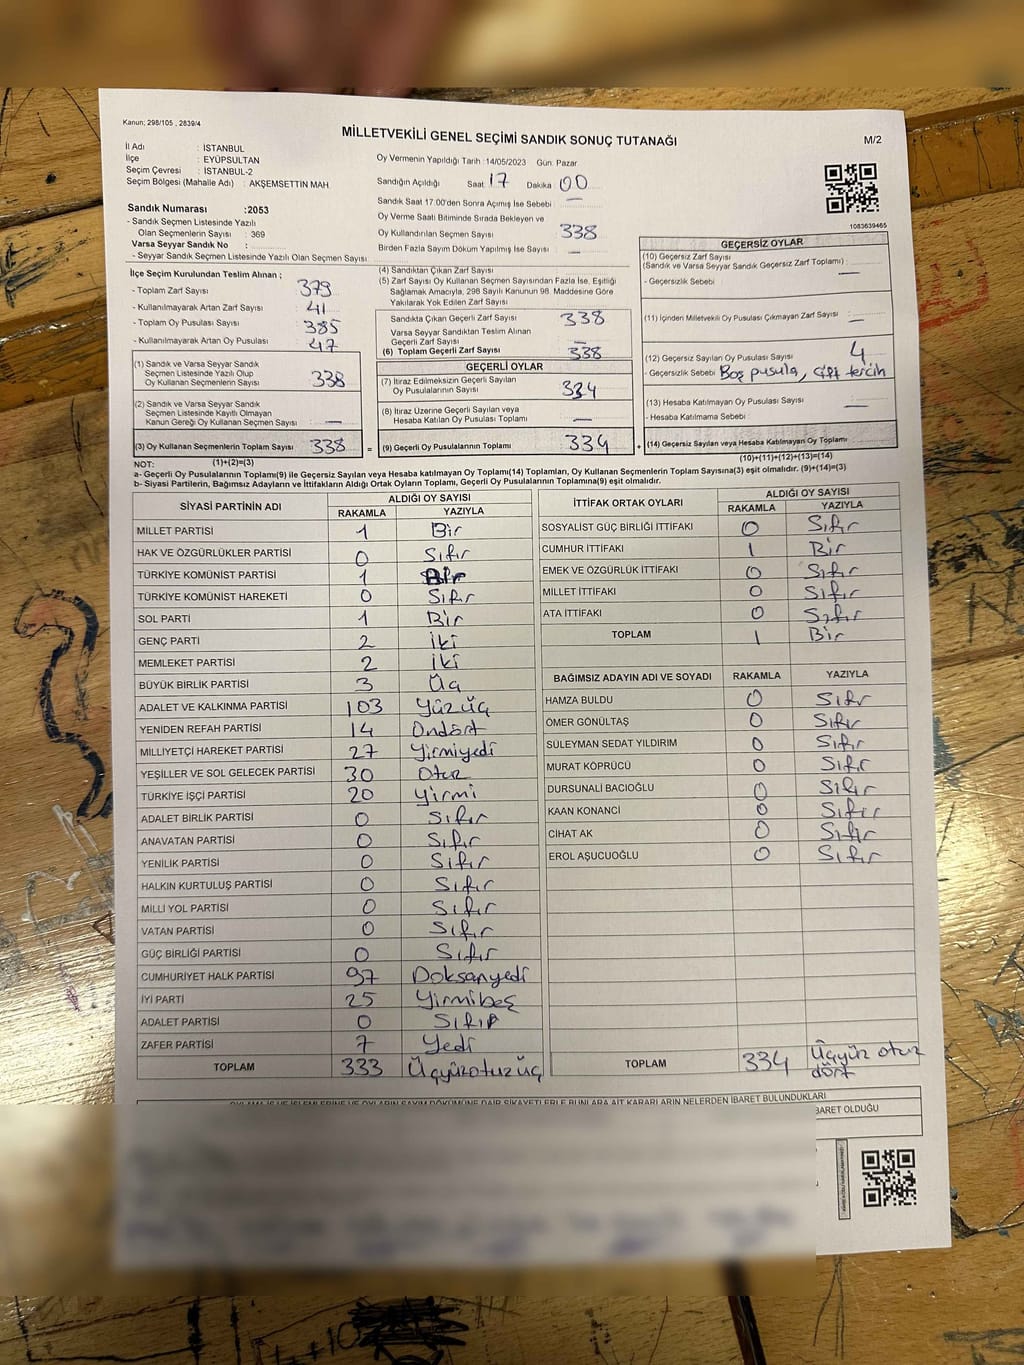 Kanun; 298/105 , 2839/4
MİLLETVEKİLİ GENEL SEÇİMİ SANDIK SONUÇ TUTANAĞI
M/2
İl Adı : İSTANBUL
İlçe : EYÜPSULTAN
Seçim Çevresi : İSTANBUL-2
Seçim Bölgesi (Mahalle Adı) : AKŞEMSETTİN MAH.
Oy Vermenin Yapıldığı Tarih :14/05/2023 Gün: Pazar
Sandığın Açıldığı Saat: 17 Dakika: 00
Sandık Saat 17.00'den Sonra Açımış İse Sebebi : —
Oy Verme Saati Bitiminde Sırada Bekleyen ve
Oy Kullandırılan Seçmen Sayısı : 338
Birden Fazla Sayım Döküm Yapılmış İse Sayısı : —
1083639465
Sandık Numarası :2053
- Sandık Seçmen Listesinde Yazılı
Olan Seçmenlerin Sayısı : 369
Varsa Seyyar Sandık No :
- Seyyar Sandık Seçmen Listesinde Yazılı Olan Seçmen Sayısı:
İlçe Seçim Kurulundan Teslim Alınan ;
- Toplam Zarf Sayısı : 379
- Kullanılmayarak Artan Zarf Sayısı : 41
- Toplam Oy Pusulası Sayısı : 385
- Kullanılmayarak Artan Oy Pusulası : 47
(1) Sandık ve Varsa Seyyar Sandık
Seçmen Listesinde Yazılı Olup
Oy Kullanan Seçmenlerin Sayısı : 338
(2) Sandık ve Varsa Seyyar Sandık
Seçmen Listesinde Kayıtlı Olmayan
Kanun Gereği Oy Kullanan Seçmen Sayısı : —
(3) Oy Kullanan Seçmenlerin Toplam Sayısı : 338 =
(1)+(2)=(3)
(4) Sandıktan Çıkan Zarf Sayısı :
(5) Zarf Sayısı Oy Kullanan Seçmen Sayısından Fazla İse, Eşitliği
Sağlamak Amacıyla, 298 Sayılı Kanunun 98. Maddesine Göre
Yakılarak Yok Edilen Zarf Sayısı :
Sandıkta Çıkan Geçerli Zarf Sayısı : 338
Varsa Seyyar Sandıktan Teslim Alınan
Geçerli Zarf Sayısı : —
(6) Toplam Geçerli Zarf Sayısı : 338
GEÇERLİ OYLAR
(7) İtiraz Edilmeksizin Geçerli Sayılan
Oy Pusulalarının Sayısı : 334
(8) İtiraz Üzerine Geçerli Sayılan veya
Hesaba Katılan Oy Pusulası Toplamı : —
(9) Geçerli Oy Pusulalarının Toplamı : 334 +
GEÇERSİZ OYLAR
(10) Geçersiz Zarf Sayısı
(Sandık ve Varsa Seyyar Sandık Geçersiz Zarf Toplamı) : —
- Geçersizlik Sebebi :
(11) İçinden Milletvekili Oy Pusulası Çıkmayan Zarf Sayısı : —
(12) Geçersiz Sayılan Oy Pusulası Sayısı : 4
- Geçersizlik Sebebi : Boş pusula, çift tercih
(13) Hesaba Katılmayan Oy Pusulası Sayısı : —
- Hesaba Katılmama Sebebi :
(14) Geçersiz Sayılan veya Hesaba Katılmayan Oy Toplamı :
(10)+(11)+(12)+(13)=(14)
NOT:
a- Geçerli Oy Pusulalarının Toplamı(9) ile Geçersiz Sayılan veya Hesaba katılmayan Oy Toplamı(14) Toplamları, Oy Kullanan Seçmenlerin Toplam Sayısına(3) eşit olmalıdır. (9)+(14)=(3)
b- Siyasi Partilerin, Bağımsız Adayların ve İttifakların Aldığı Ortak Oyların Toplamı, Geçerli Oy Pusulalarının Toplamına(9) eşit olmalıdır.
SİYASİ PARTİNİN ADI ALDIĞI OY SAYISI
RAKAMLA YAZIYLA
MİLLET PARTİSİ 1 Bir
HAK VE ÖZGÜRLÜKLER PARTİSİ 0 Sıfır
TÜRKİYE KOMÜNİST PARTİSİ 1 Bir
TÜRKİYE KOMÜNİST HAREKETİ 0 Sıfır
SOL PARTİ 1 Bir
GENÇ PARTİ 2 İki
MEMLEKET PARTİSİ 2 İki
BÜYÜK BİRLİK PARTİSİ 3 Üç
ADALET VE KALKINMA PARTİSİ 103 Yüzüç
YENİDEN REFAH PARTİSİ 14 Ondört
MİLLİYETÇİ HAREKET PARTİSİ 27 Yirmiyedi
YEŞİLLER VE SOL GELECEK PARTİSİ 30 Otuz
TÜRKİYE İŞÇİ PARTİSİ 20 Yirmi
ADALET BİRLİK PARTİSİ 0 Sıfır
ANAVATAN PARTİSİ 0 Sıfır
YENİLİK PARTİSİ 0 Sıfır
HALKIN KURTULUŞ PARTİSİ 0 Sıfır
MİLLİ YOL PARTİSİ 0 Sıfır
VATAN PARTİSİ 0 Sıfır
GÜÇ BİRLİĞİ PARTİSİ 0 Sıfır
CUMHURİYET HALK PARTİSİ 97 Doksanyedi
İYİ PARTİ 25 Yirmibeş
ADALET PARTİSİ 0 Sıfır
ZAFER PARTİSİ 7 Yedi
TOPLAM 333 Üçyüzotuzüç
İTTİFAK ORTAK OYLARI ALDIĞI OY SAYISI
RAKAMLA YAZIYLA
SOSYALİST GÜÇ BİRLİĞİ İTTİFAKI 0 Sıfır
CUMHUR İTTİFAKI 1 Bir
EMEK VE ÖZGÜRLÜK İTTİFAKI 0 Sıfır
MİLLET İTTİFAKI 0 Sıfır
ATA İTTİFAKI 0 Sıfır
TOPLAM 1 Bir
BAĞIMSIZ ADAYIN ADI VE SOYADI RAKAMLA YAZIYLA
HAMZA BULDU 0 Sıfır
ÖMER GÖNÜLTAŞ 0 Sıfır
SÜLEYMAN SEDAT YILDIRIM 0 Sıfır
MURAT KÖPRÜCÜ 0 Sıfır
DURSUNALİ BACIOĞLU 0 Sıfır
KAAN KONANCİ 0 Sıfır
CİHAT AK 0 Sıfır
EROL AŞUCUOĞLU 0 Sıfır
TOPLAM 334 Üçyüz otuz
dört
OYLAMA İŞ VE İŞLEMLERİNE VE OYLARIN SAYIM DÖKÜMÜNE DAİR ŞİKAYETLERLE BUNLARA AİT KARARLARIN NELERDEN İBARET BULUNDUKLARI
BARET OLDUĞU